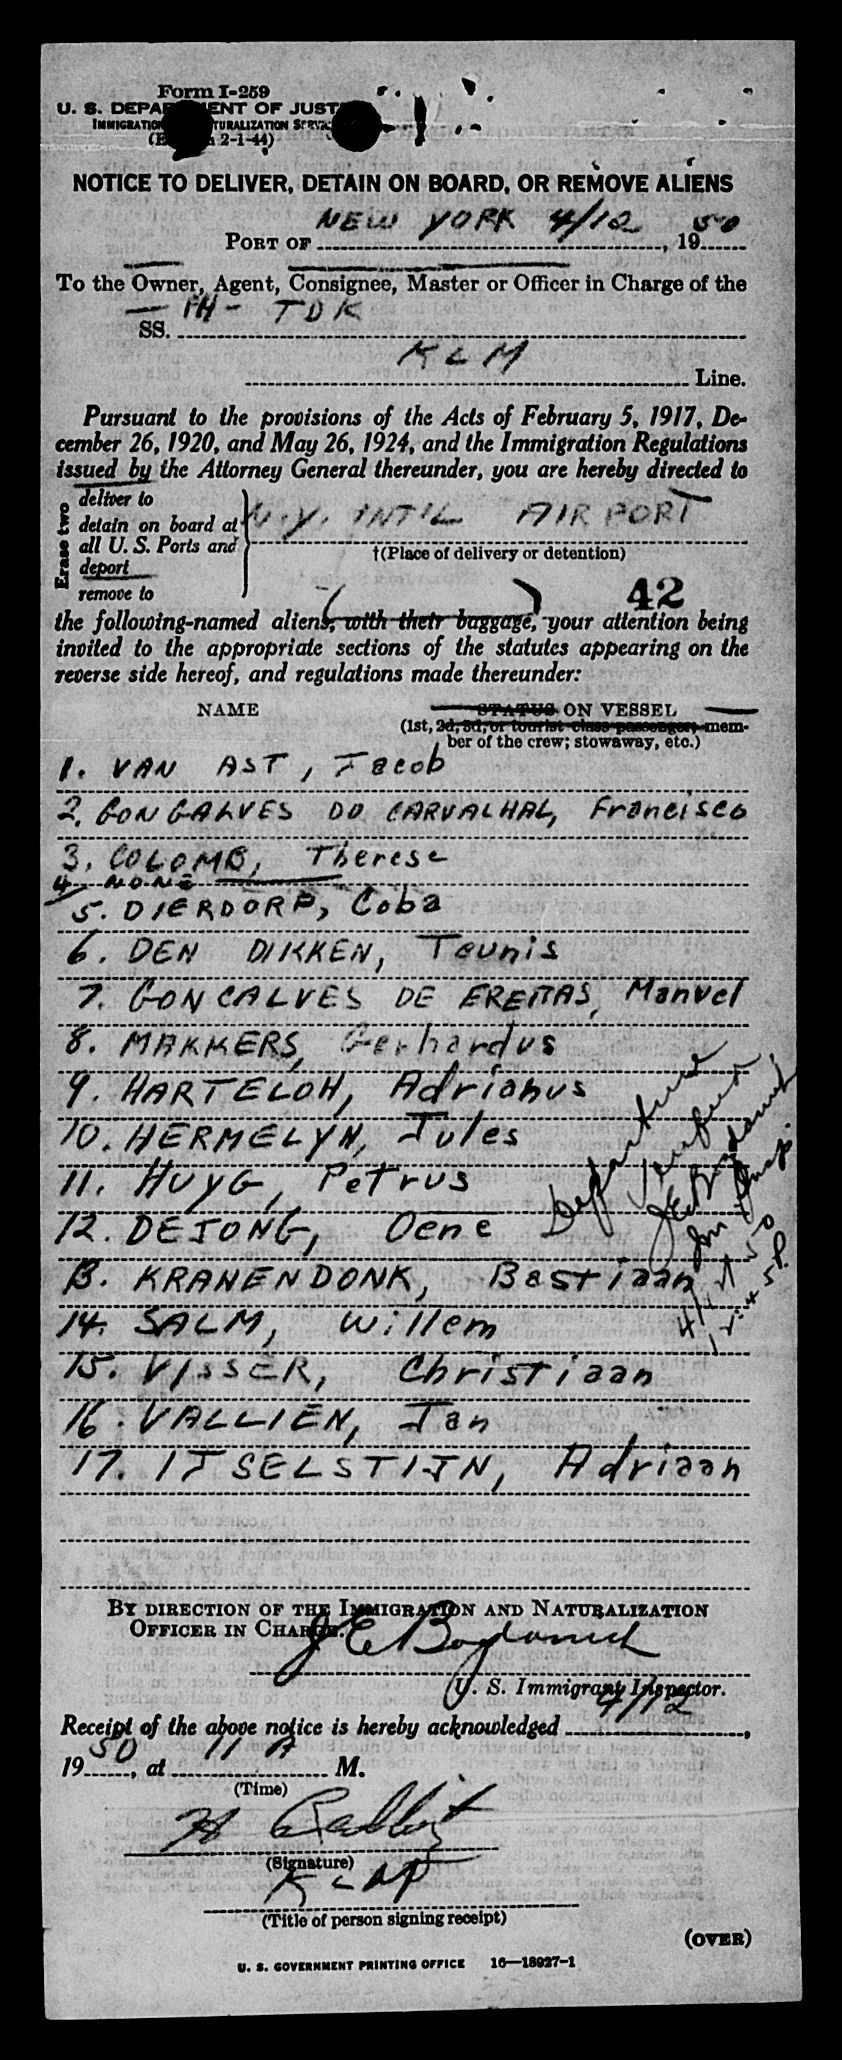 Form I-259
U. S. DEPARTMENT OF JUSTICE
IMMIGRATION NATURALIZATION SERVICE
2-1-44)
NOTICE TO DELIVER, DETAIN ON BOARD, OR REMOVE ALIENS
PORT OF NEW YORK 4/12, 1950
To the Owner, Agent, Consignee, Master or Officer in Charge of the
SS. PH - TDK
KLM Line.
Pursuant to the provisions of the Acts of February 5, 1917, De-
cember 26, 1920, and May 26, 1924, and the Immigration Regulations
issued by the Attorney General thereunder, you are hereby directed to
Erase two
deliver to
detain on board at
all U. S. Ports and
deport
remove to
N.Y. INT'L AIRPORT
†(Place of delivery or detention)
42
the following-named aliens, (with their baggage,) your attention being
invited to the appropriate sections of the statutes appearing on the
reverse side hereof, and regulations made thereunder:
NAME STATUS ON VESSEL
(1st, 2d, 3d, or tourist class passenger; mem-
ber of the crew; stowaway, etc.)
1. VAN AST, Jacob
2. GONGALVES DO CARVALHAL, Francisco
3. COLOMB, Therese
4. NONE
5. DIERDORP, Coba
6. DEN DIKKEN, Teunis
7. GONCALVES DE FREITAS, Manuel
8. MAKKERS, Gerhardus
9. HARTELOH, Adrianus
10. HERMELYN, Jules
11. HUYG, Petrus
12. DEJONG, Oene
13. KRANENDONK, Bastiaan
14. SALM, Willem
15. VISSER, Christiaan
16. VALLIEN, Jan
17. IJSELSTIJN, Adriaan
Departure
Verified
Im Insp.
BY DIRECTION OF THE IMMIGRATION AND NATURALIZATION
OFFICER IN CHARGE.
U. S. Immigrant Inspector.
Receipt of the above notice is hereby acknowledged 4/12,
1950, at 11 A M.
(Time)
(Signature)
(Title of person signing receipt)
(OVER)
U. S. GOVERNMENT PRINTING OFFICE 16—18927-1